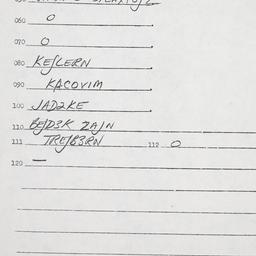 060 O
070 O
080 KEſLERN
090 KACOVIM
100 JAD2KE
110 BEſD3K ZAJN
111 TREſB3RN 112 O
120 —